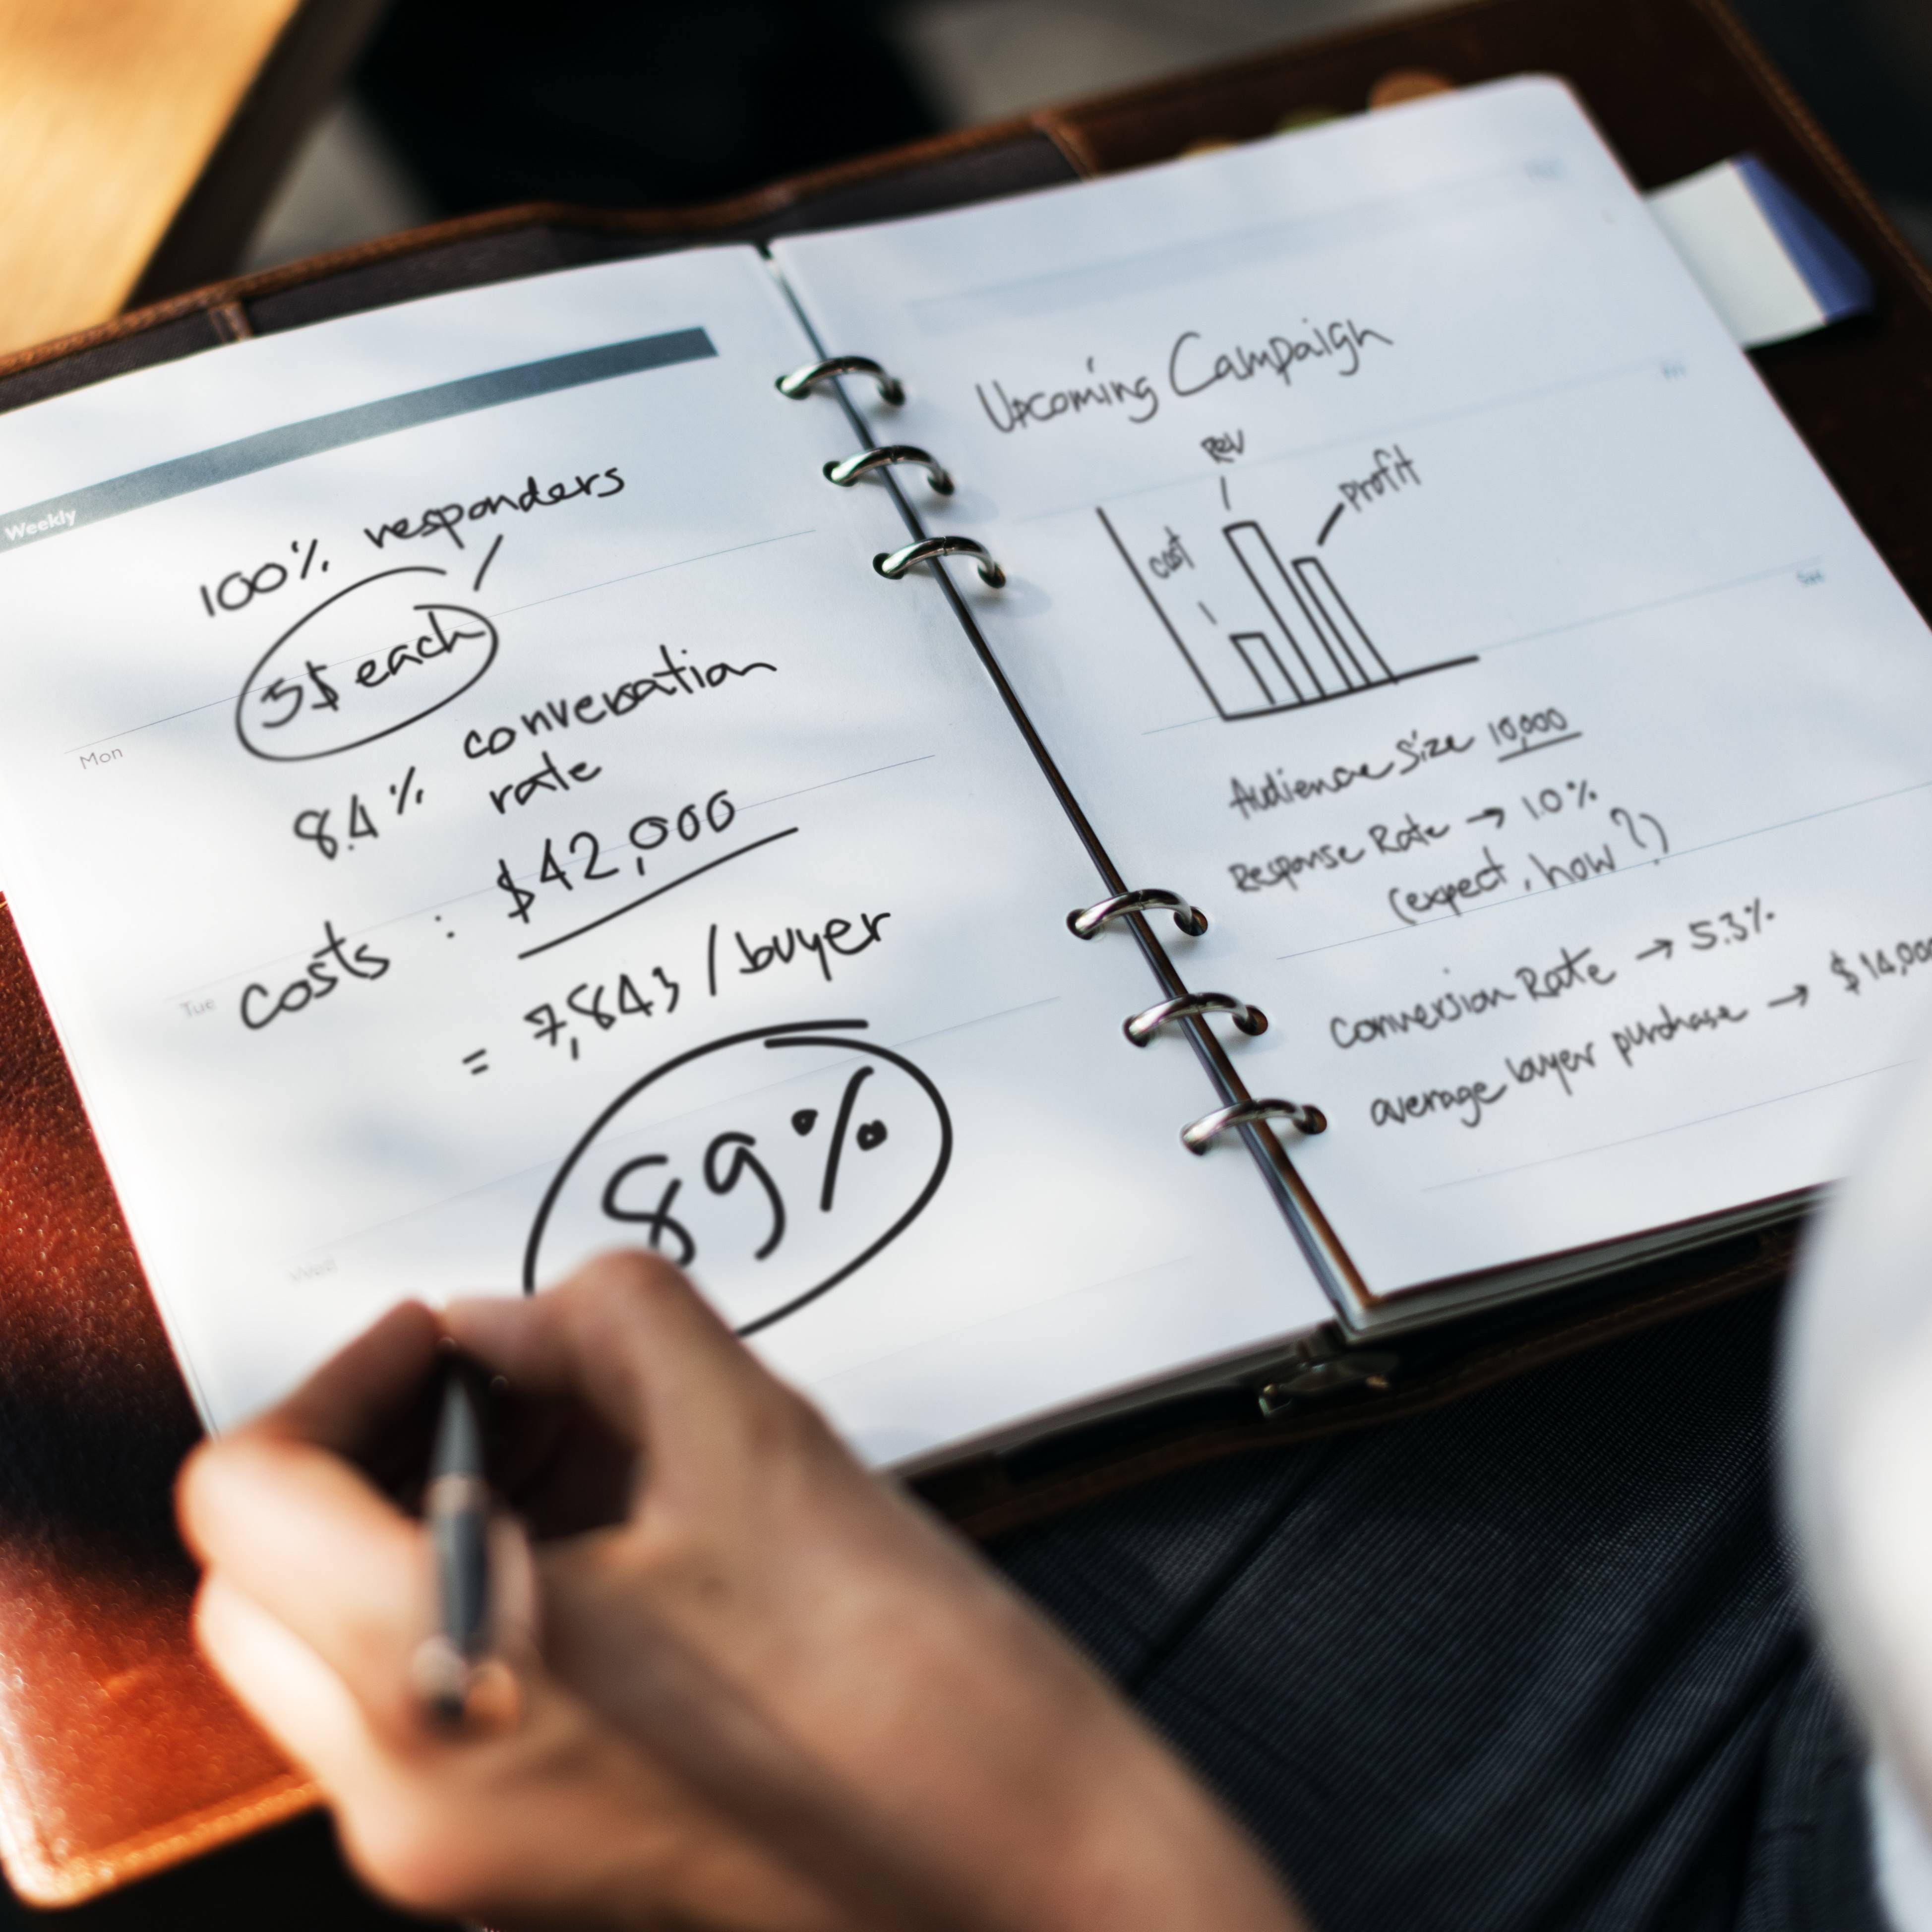 Weekly
100% responders
5$ each
Mon
8.4% conversation
rate
Tue
costs : $42,000
= 7,843 / buyer
Wed
89%
Upcoming Campaign
Fri
Rev
Profit
cost
Sat
Audience Size 10,000
Response Rate → 1.0%
(expect, how?)
Conversion Rate → 5.3%
average buyer purchase → $14,000